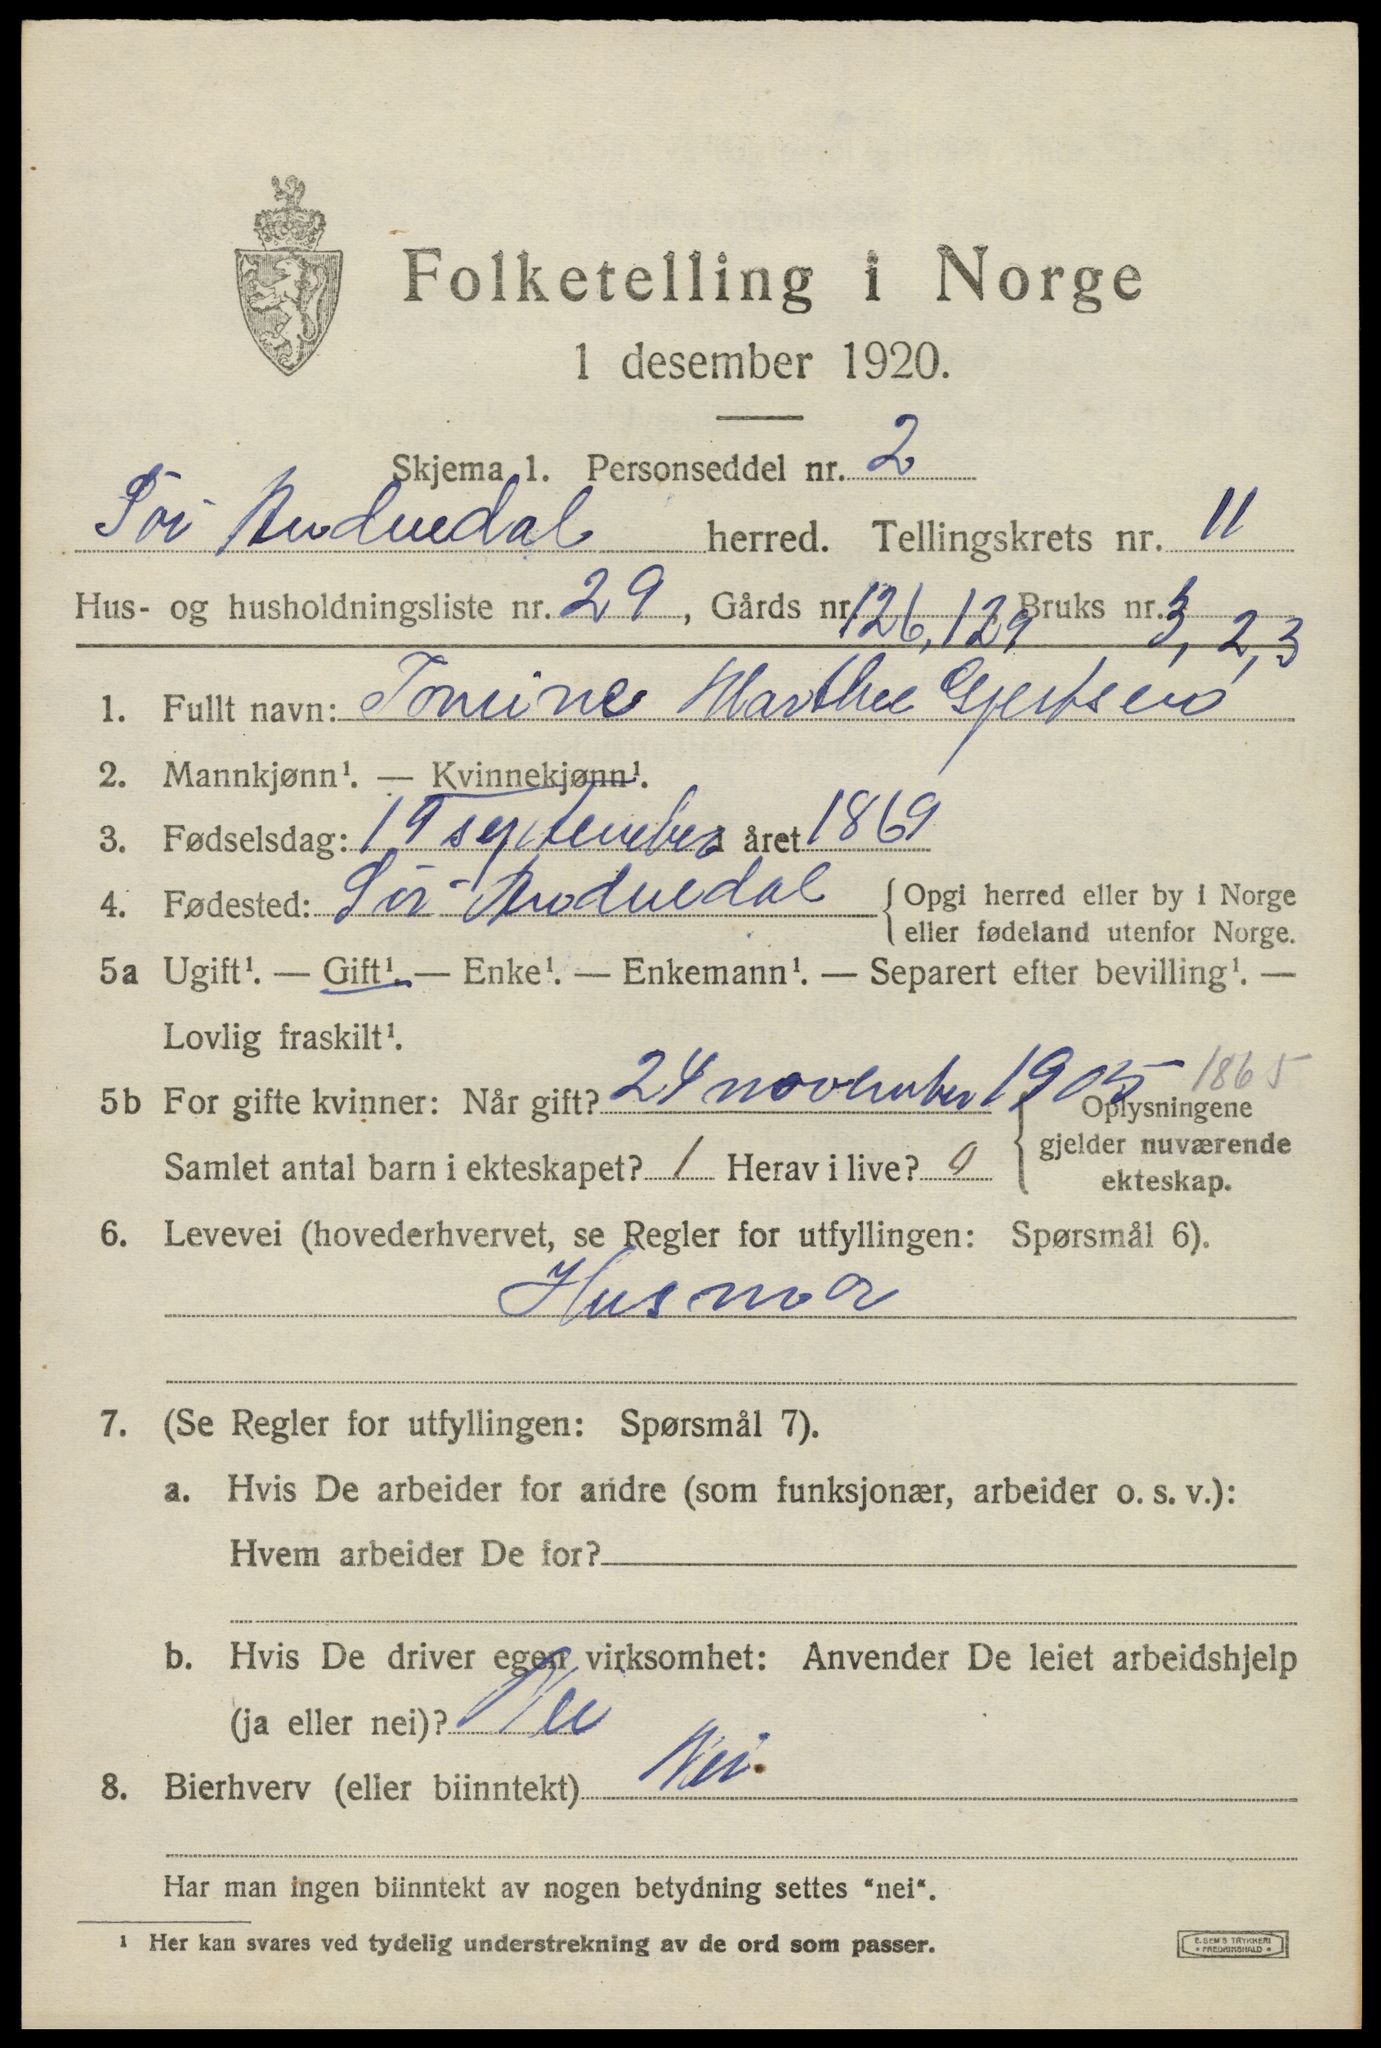 Folketelling i Norge
1 desember 1920.
Skjema 1. Personseddel nr. 2
Sör Audnedal herred. Tellingskrets nr. 11
Hus- og husholdningsliste nr. 29, Gårds nr. 126, 129 Bruks nr. 3, 2, 3
1. Fullt navn: Tomine Marthee Gjertsen
2. Mannkjønn¹. — Kvinnekjønn¹.
3. Fødselsdag: 19 september i året 1869
4. Fødested: Sör Audnedal {Opgi herred eller by i Norge
eller fødeland utenfor Norge.
5a Ugift¹. — Gift¹. — Enke¹. — Enkemann¹. — Separert efter bevilling¹. —
Lovlig fraskilt¹.
5b For gifte kvinner: Når gift? 24 november 1905 1865
Samlet antal barn i ekteskapet? 1 Herav i live? 0 {Oplysningene
gjelder nuværende
ekteskap.
6. Levevei (hovederhvervet, se Regler for utfyllingen: Spørsmål 6).
Husmor
7. (Se Regler for utfyllingen: Spørsmål 7).
a. Hvis De arbeider for andre (som funksjonær, arbeider o. s. v.):
Hvem arbeider De for?
b. Hvis De driver egen virksomhet: Anvender De leiet arbeidshjelp
(ja eller nei)? Nei
8. Bierhverv (eller biinntekt) Nei.
Har man ingen biinntekt av nogen betydning settes "nei".
¹ Her kan svares ved tydelig understrekning av de ord som passer.
E. SEM'S TRYKKERI
FREDRIKSHALD